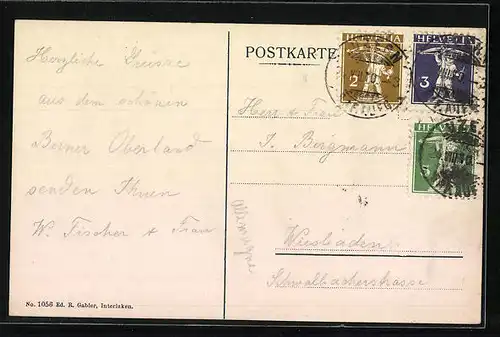 Herzliche Grüsse
aus dem schönen
Berner Oberland
senden Ihnen
W. Fischer & Frau
No. 1056 Ed. R. Gabler, Interlaken.
POSTKARTE
HELVETIA
2
HELVETIA
3
HELVETIA
Herr & Frau
J. Bergmann
Wiesbaden
Schwalbacherstrasse
Allemagne